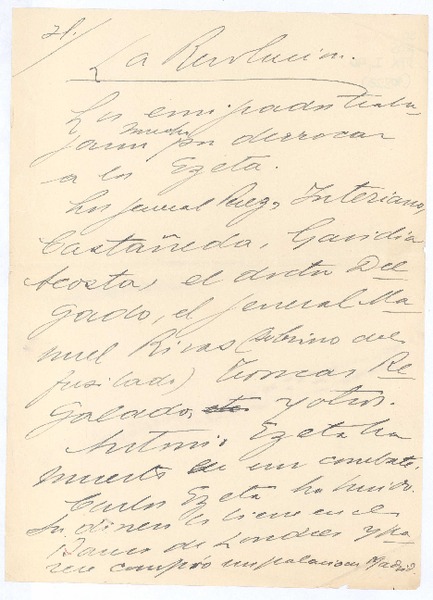 21/
La Revolucion.
Los emigrados traba-
jaron mucho por derrocar
a los Ezeta.
Los general Perez, Interiano,
Castañeda, Gavidia
Acosta, el doctor Del
gado, el general Ma-
nuel Rivas (sobrino del
fusilado) Tomas Re-
galado, y otros.
Antonio Ezeta ha
muerto en un combate.
Carlos Ezeta ha huido.
Su dinero lo tiene en el
Banco de Londres y pa
rece compró un palacio en Madrid